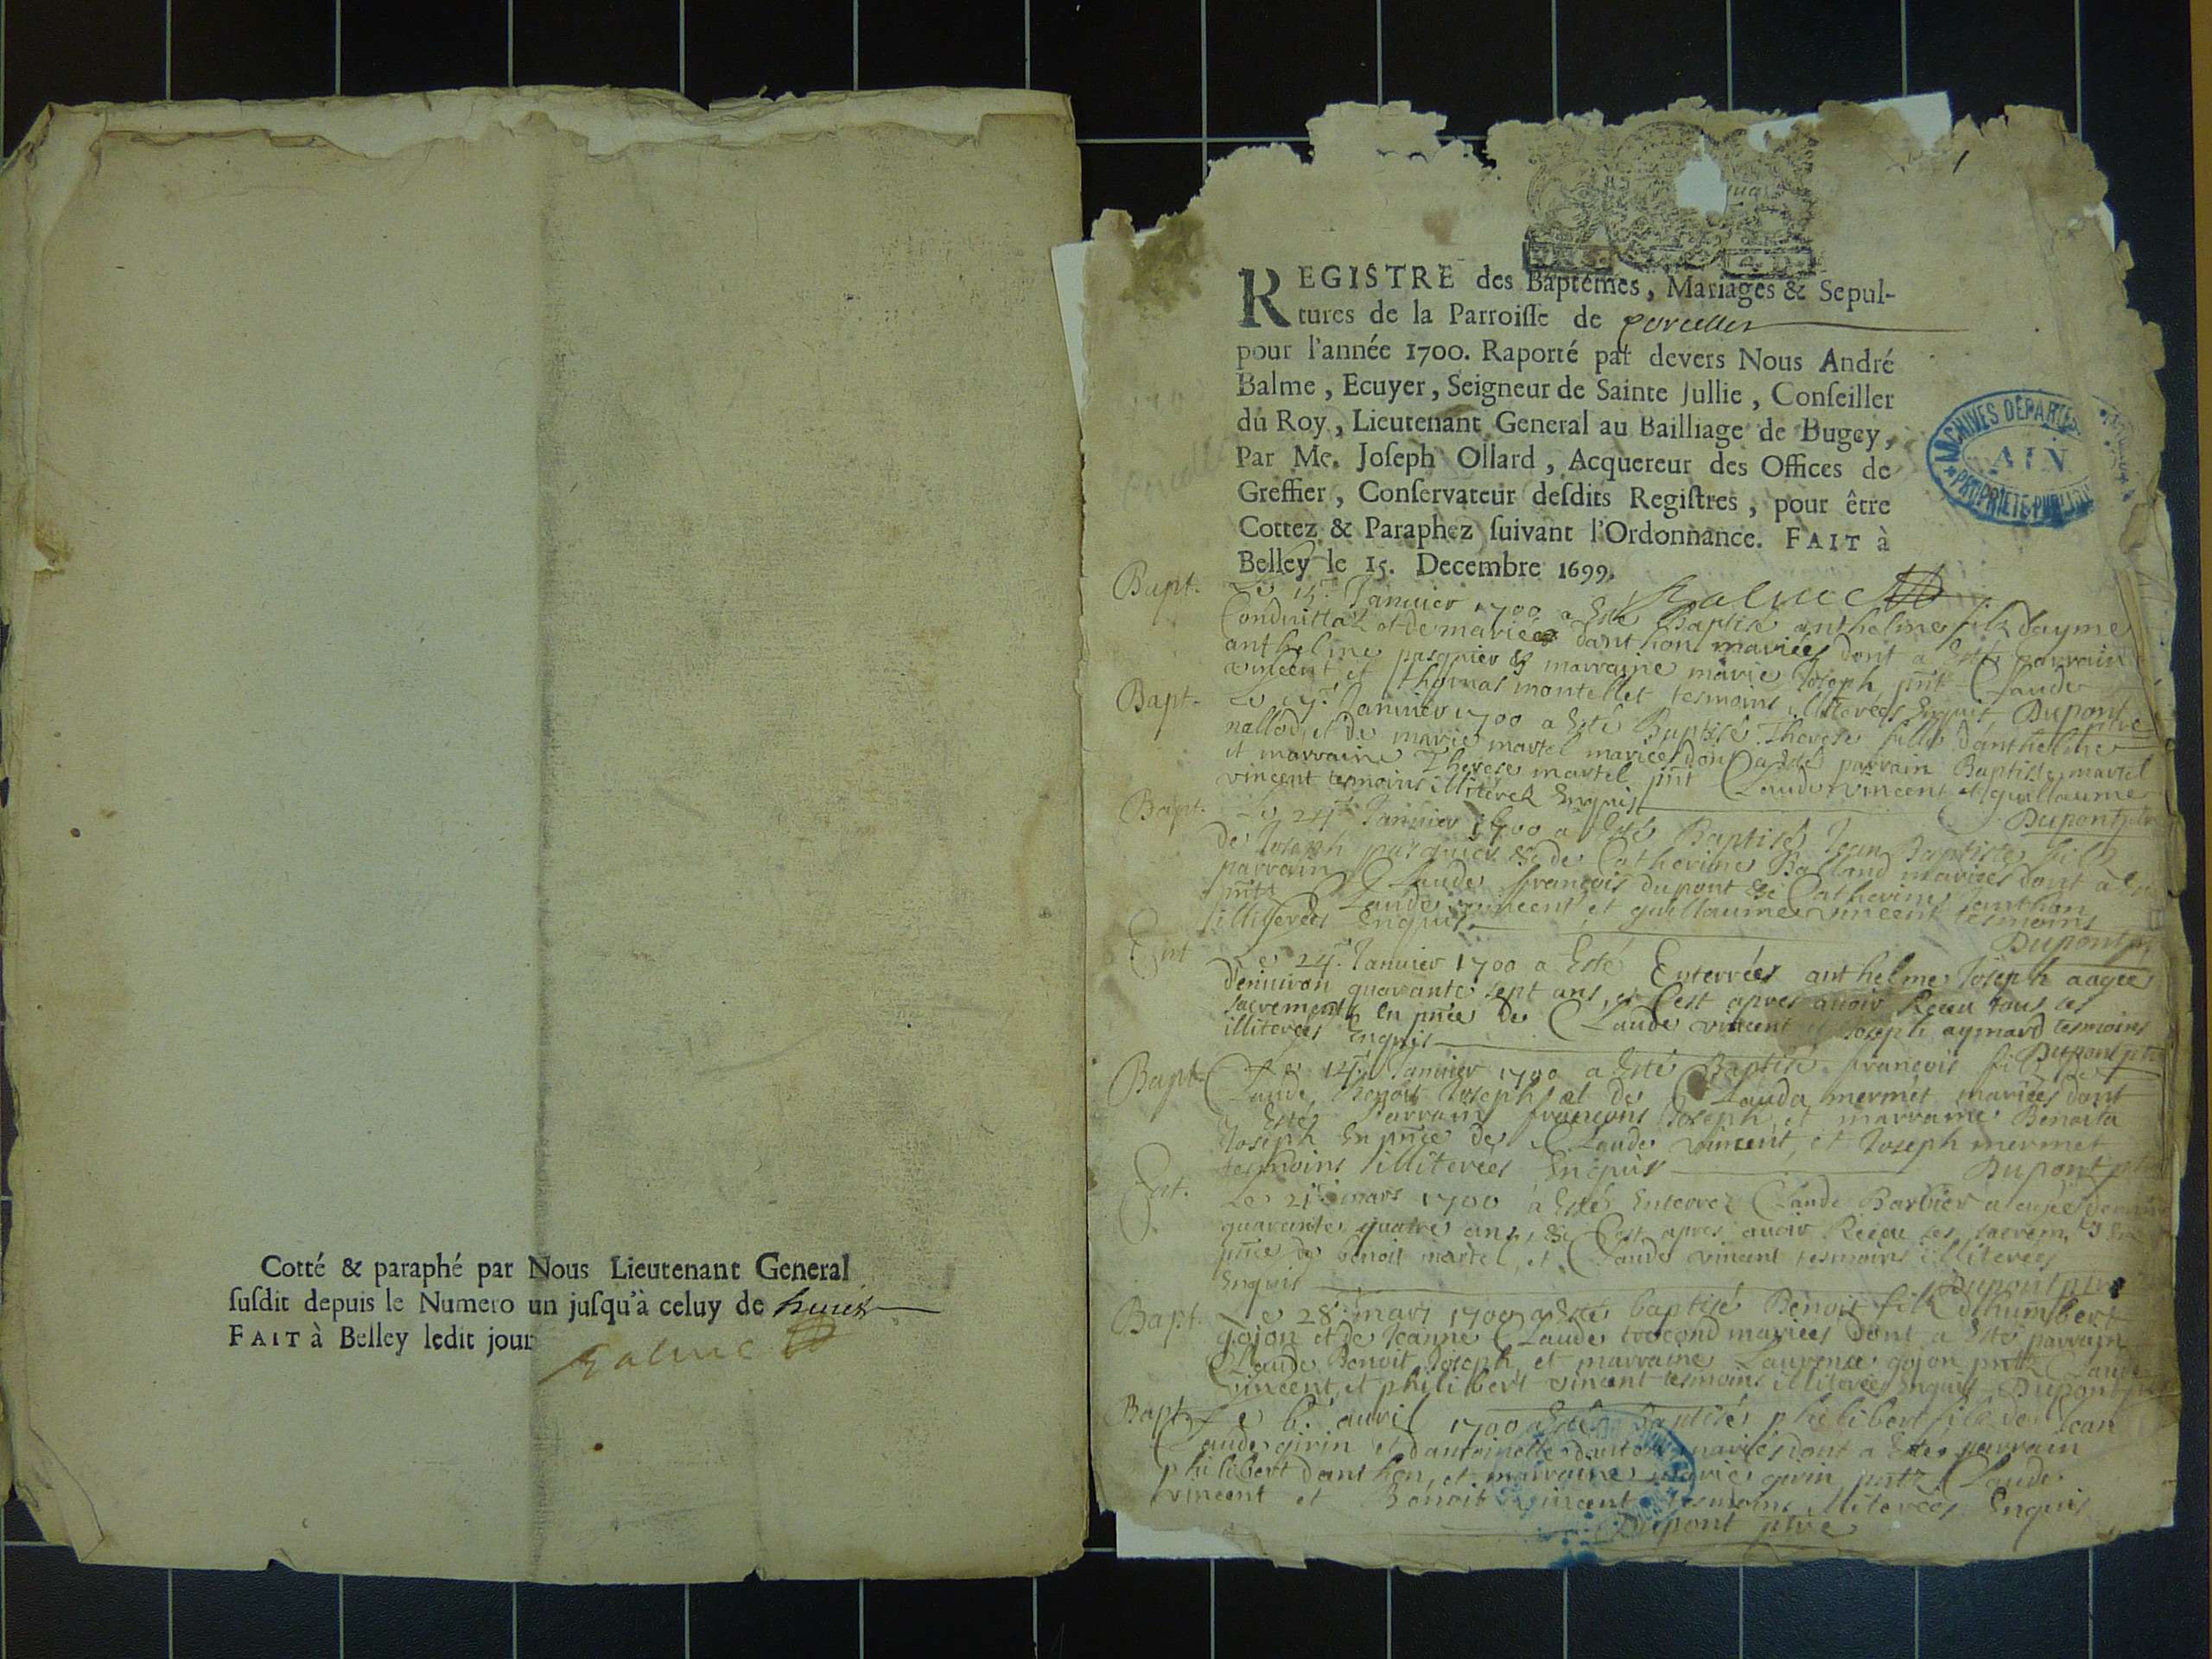 Cotté & paraphé par Nous Lieutenant General
susdit depuis le Numero un jusqu'à celuy de huict
FAIT à Belley ledit jour
Balme
1
REGISTRE des Baptêmes, Mariages & Sepul-
tures de la Parroisse de
pour l'année 1700. Raporté par devers Nous André
Balme, Ecuyer, Seigneur de Sainte Jullie, Conseiller
du Roy, Lieutenant General au Bailliage de Bugey,
Par Me. Joseph Ollard, Acquereur des Offices de
Greffier, Conservateur desdits Registres, pour être
Cottez & Paraphez suivant l'Ordonnance. FAIT à
Belley le 15. Decembre 1699.
Balme
ARCHIVES DÉPARTES
AIN
PROPRIETE PUBLIQUE
Bapt. Le Januier 1700 a Esté Baptisé anthelme filz dayme
et de marie danthon mariés dont a Esté parrain
anthelme pasquier & marraine marie Joseph pnt Claude
vincent et thomas montellet tesmoins illiterés Enquis Dupont ptre
Bapt. Le Januier 1700 a Esté Baptisé Therese fille danthelme
nallod et de marie martel mariés dont a Esté parrain Baptiste martel
et marraine Therese martel pnt Claude vincent et guillaume
vincent tesmoins illiterez Enquis Dupont ptre
Bapt. Le Januier 1700 a Esté Baptisé Jean Baptiste filz
de Joseph pasquier & de Catherine Balland mariés dont a
parrain Claude françois dupont & Catherine Janthon
pntz Claude vincent et guillaume vincent tesmoins
illiterés Enquis Dupont ptre
Ent Le 24 Januier 1700 a Esté Enterrée anthelme Joseph aagée
denuiron quarante sept ans, et C'est apres auoir Receu tous les
sacrements En pnce de Claude vincent et Joseph aymard tesmoins
illiterés Enquis Dupont ptre
Bapt Le Januier 1700 a Esté Baptisé françois filz de
Claude Benoit Joseph et de Clauda mermet mariés dont
a Esté Parrain françois Joseph et marraine Benoita
Joseph En pnce de Claude vincent, et Joseph mermet
tesmoins illiterés Enquis Dupont ptre
Ent. Le 21 mars 1700 a Esté Enterrez Claude Barbier
quarante quatre ans, & C'est apres auoir Receu ses sacrem
pnce de benoit martel, et Claude vincent tesmoins illiterés
Enquis Dupont ptre
Bapt. Le 28 mars 1700 a Esté baptisé Benoit filz dhumbert
gojon et de Jeanne Claude trocond mariés dont a Esté parrain
Claude Benoit Joseph et marraine Laurence gojon pntz Claude
vincent, et philibert vincent tesmoins illiterés Enquis Dupont ptre
Bapt Le 6 auril 1700 a Esté Baptisé philibert filz de Jean
Claude girin et dantoinette mariés dont a Esté parrain
philibert danthon, et marraine marie girin pntz Claude
vincent et Benoit vincent tesmoins illiterés Enquis
Dupont ptre